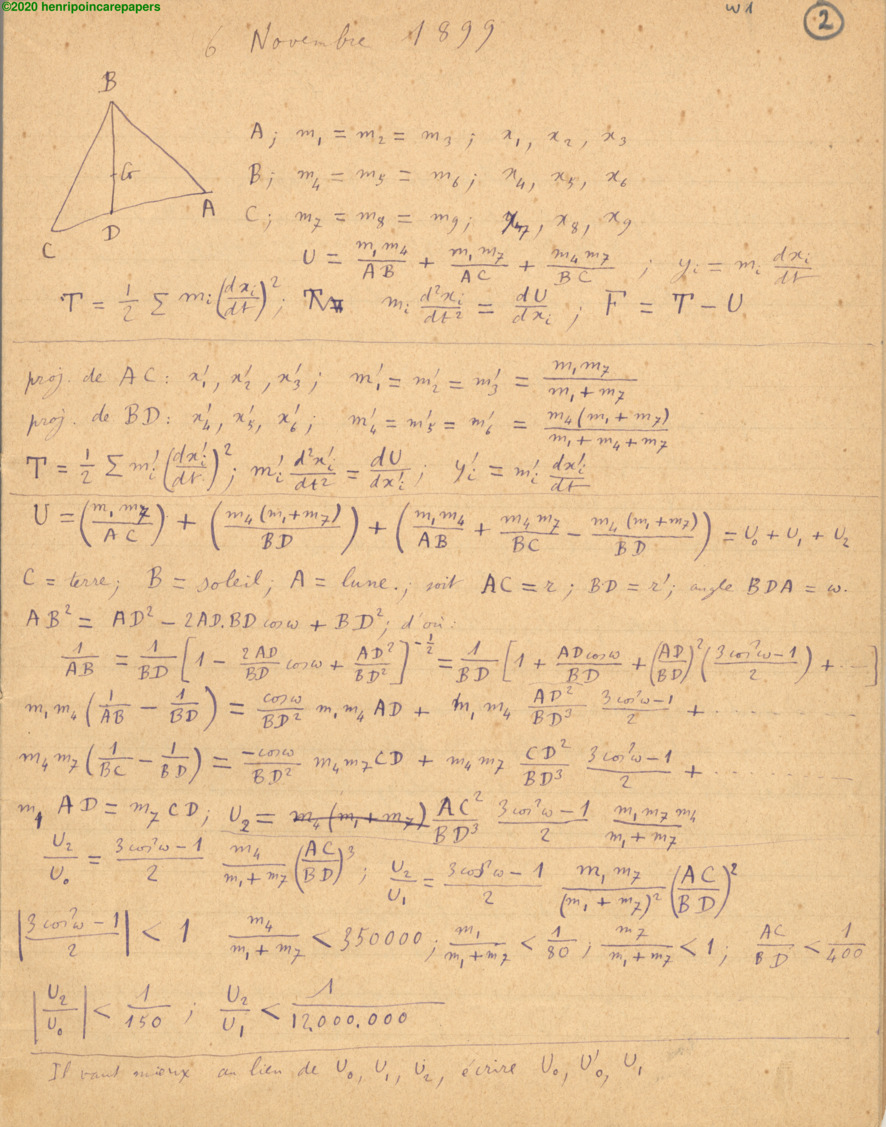 ©2020 henripoincarepapers
w1
2
6 Novembre 1899
B
G
A
D
C
A; m₁ = m₂ = m₃; x₁, x₂, x₃
B; m₄ = m₅ = m₆; x₄, x₅, x₆
C; m₇ = m₈ = m₉; x₇, x₈, x₉
U = m₁m₄/AB + m₁m₇/AC + m₄m₇/BC ; yᵢ = mᵢ dxᵢ/dt
T = 1/2 Σ mᵢ (dxᵢ/dt)²; mᵢ d²xᵢ/dt² = dU/dxᵢ ; F = T − U
proj. de AC: x'₁, x'₂, x'₃; m'₁ = m'₂ = m'₃ = m₁m₇/(m₁+m₇)
proj. de BD: x'₄, x'₅, x'₆; m'₄ = m'₅ = m'₆ = m₄(m₁+m₇)/(m₁+m₄+m₇)
T = 1/2 Σ m'ᵢ (dx'ᵢ/dt)²; m'ᵢ d²x'ᵢ/dt² = dU/dx'ᵢ ; y'ᵢ = m'ᵢ dx'ᵢ/dt
U = (m₁m₇/AC) + (m₄(m₁+m₇)/BD) + (m₁m₄/AB + m₄m₇/BC − m₄(m₁+m₇)/BD) = U₀ + U₁ + U₂
C = terre; B = soleil; A = lune.; soit AC = r; BD = r'; angle BDA = ω.
AB² = AD² − 2AD.BD cos ω + BD²; d'où:
1/AB = 1/BD [1 − 2AD/BD cos ω + AD²/BD²]^(−1/2) = 1/BD [1 + AD cos ω/BD + (AD/BD)² ((3cos²ω−1)/2) + ....]
m₁m₄ (1/AB − 1/BD) = cos ω/BD² m₁m₄ AD + m₁m₄ AD²/BD³ (3cos²ω−1)/2 + ..........
m₄m₇ (1/BC − 1/BD) = −cos ω/BD² m₄m₇ CD + m₄m₇ CD²/BD³ (3cos²ω−1)/2 + ..........
m₁ AD = m₇ CD; U₂ = m₄(m₁+m₇) AC²/BD³ (3cos²ω−1)/2 m₁m₇m₄/(m₁+m₇)
U₂/U₀ = (3cos²ω−1)/2 m₄/(m₁+m₇) (AC/BD)³ ; U₂/U₁ = (3cos²ω−1)/2 m₁m₇/(m₁+m₇)² (AC/BD)²
|(3cos²ω−1)/2| < 1 m₄/(m₁+m₇) < 350000; m₁/(m₁+m₇) < 1/80; m₇/(m₁+m₇) < 1; AC/BD < 1/400
|U₂/U₀| < 1/150 ; U₂/U₁ < 1/12.000.000
Il vaut mieux au lieu de U₀, U₁, U₂, écrire U₀, U'₀, U₁